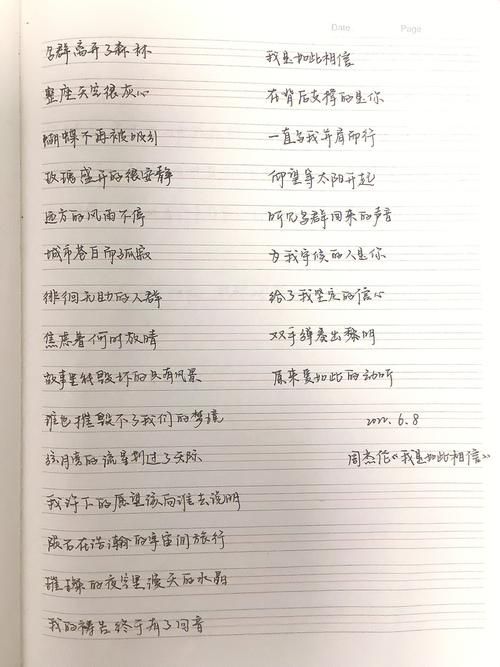 Date Page
鸟群离开了森林
整座天空很灰心
蝴蝶不再被吸引
玫瑰盛开的很安静
远方的风雨不停
城市苍白而孤寂
徘徊无助的人群
焦虑着何时放晴
故事里能毁坏的只有风景
谁也摧毁不了我们的梦境
弦月旁的流星划过了天际
我许下的愿望该向谁去说明
陨石在浩瀚的宇宙间旅行
璀璨的夜空里漫天的水晶
我的祷告终于有了回音
我是如此相信
在背后支撑的是你
一直与我并肩而行
仰望等太阳升起
听见鸟群回来的声音
为我守候的人是你
给了我坚定的信心
双手弹奏出黎明
原来爱如此的动听
2022.6.8
周杰伦《我是如此相信》